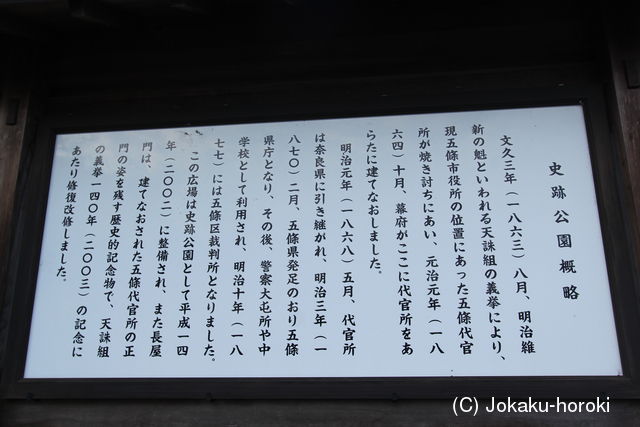 史跡公園概略
文久三年（一八六三）八月、明治維
新の魁といわれる天誅組の義挙により、
現五條市役所の位置にあった五條代官
所が焼き討ちにあい、元治元年（一八
六四）十月、幕府がここに代官所をあ
らたに建てなおしました。
明治元年（一八六八）五月、代官所
は奈良県に引き継がれ、明治三年（一
八七〇）二月、五條県発足のおり五條
県庁となり、その後、警察大屯所や中
学校として利用され、明治十年（一八
七七）には五條区裁判所となりました。
この広場は史跡公園として平成一四
年（二〇〇二）に整備され、また長屋
門は、建てなおされた五條代官所の正
門の姿を残す歴史的記念物で、天誅組
の義挙一四〇年（二〇〇三）の記念に
あたり修復改修しました。
(C) Jokaku-horoki